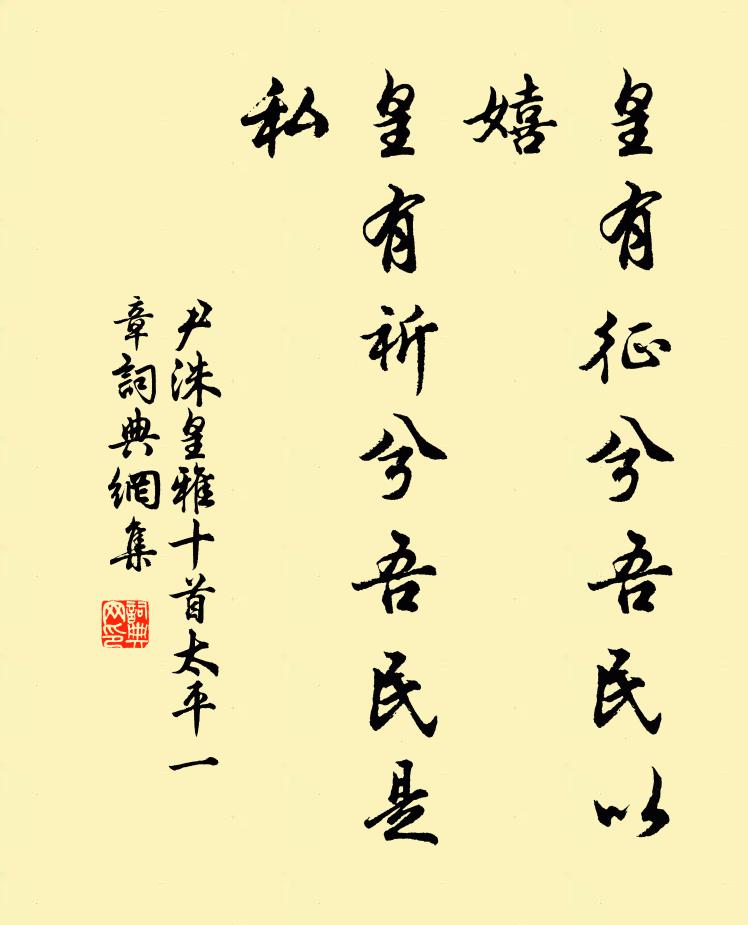 皇有征兮吾民以
嬉
皇有祈兮吾民是
私
尹洙皇雅十首太平一
章詞典網集
詞典
网印